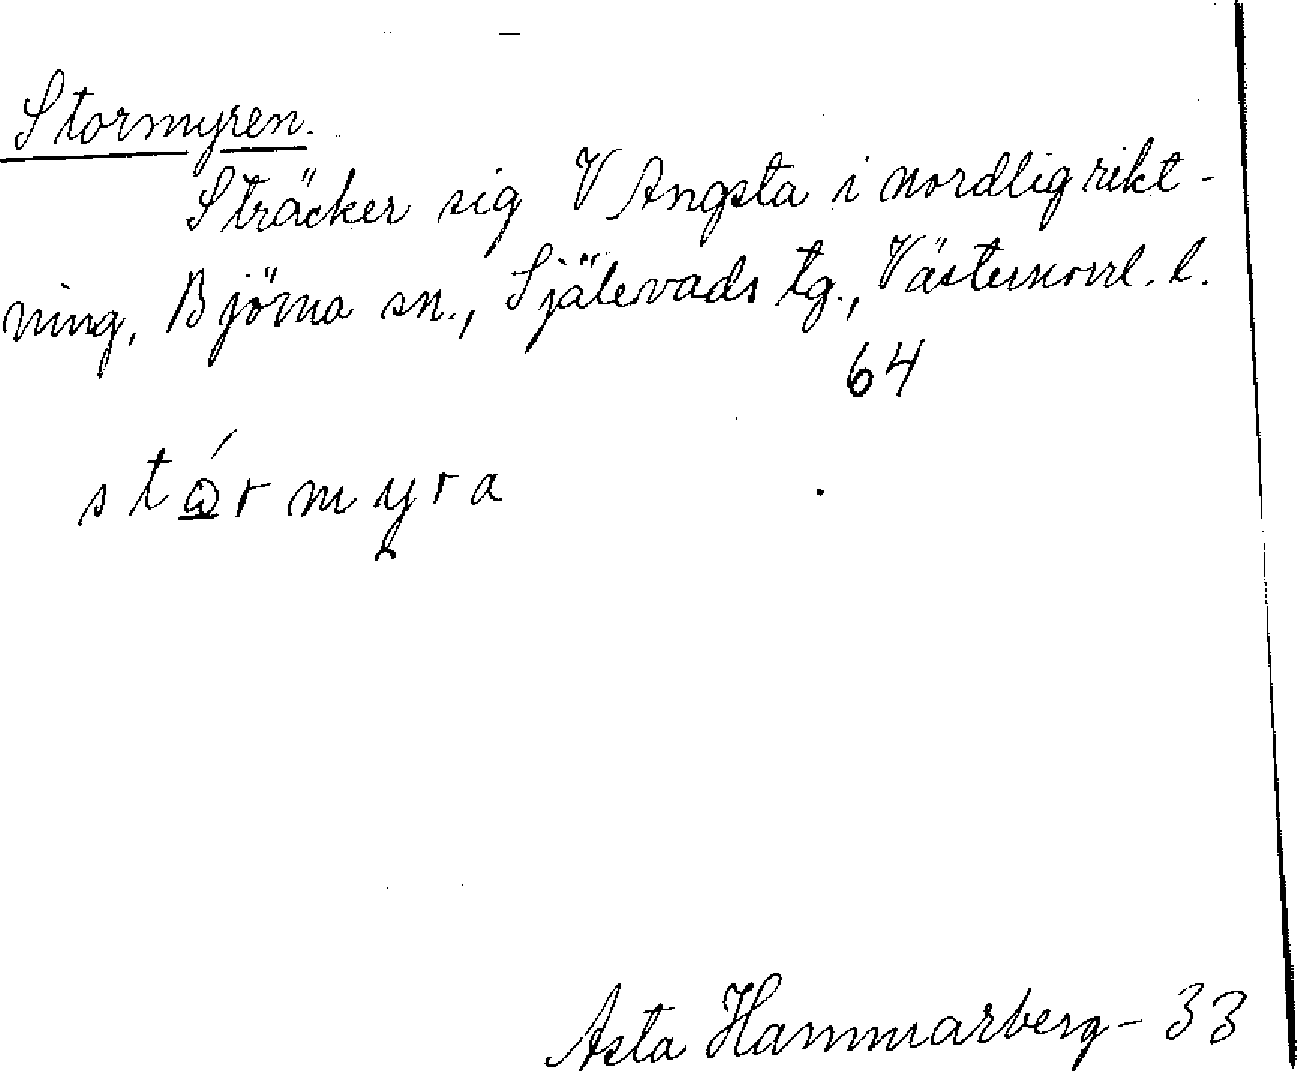 Stormyren.
Sträcker sig V Angsta i nordlig rikt-
ning, Björna sn., Själevads tg., Västernorrl. l.
64
stårmyra
Asta Hammarberg - 33